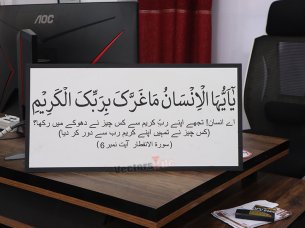 AOC
يٰۤاَيُّهَا الْاِنْسَانُ مَا غَرَّكَ بِرَبِّكَ الْكَرِيْمِ
اے انسان! تجھے اپنے ربّ کریم سے کس چیز نے دھوکے میں رکھا؟
(کس چیز نے تمہیں اپنے کریم رب سے دور کر دیا)
(سورة الانفطار آیت نمبر 6)